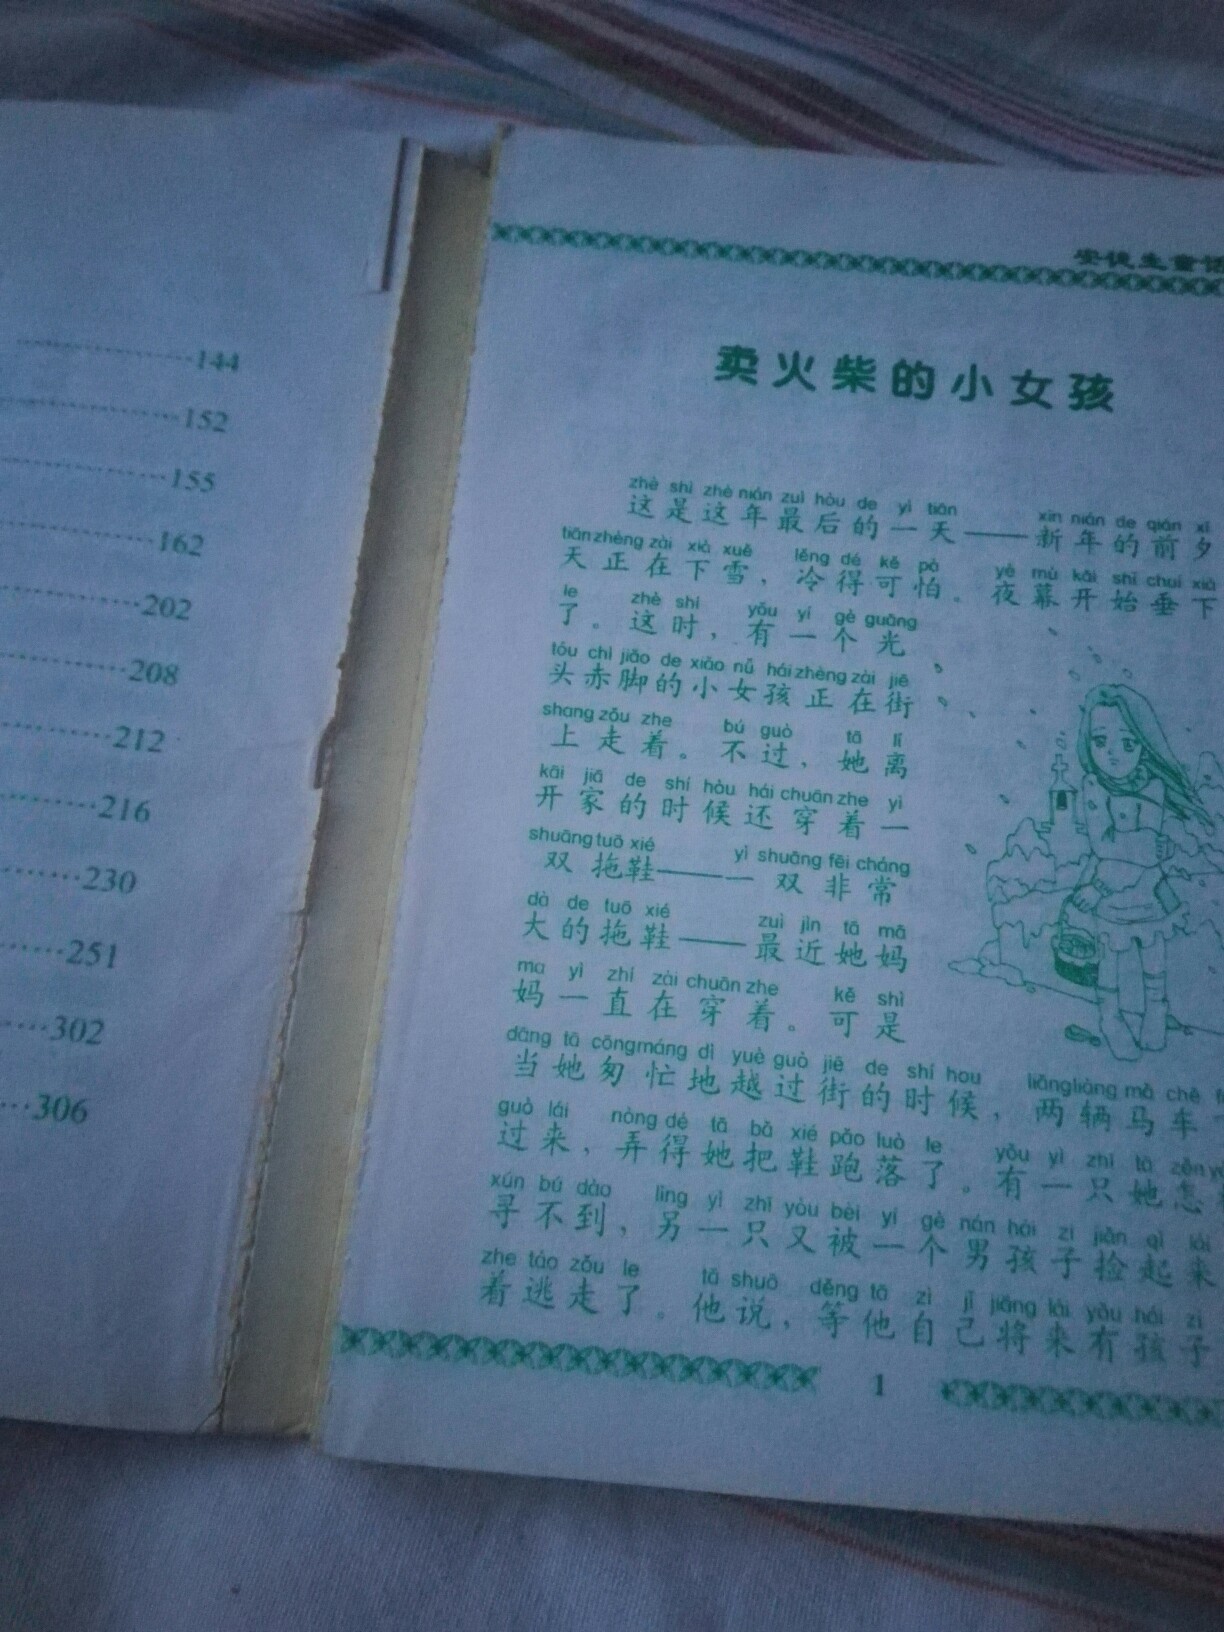 144
152
155
162
202
208
212
216
230
251
302
306
安徒生童话
卖火柴的小女孩
zhè shì zhè nián zuì hòu de yì tiān xīn nián de qián xī
这是这年最后的一天——新年的前夕
tiān zhèng zài xià xuě lěng dé kě pà yè mù kāi shǐ chuí xià
天正在下雪，冷得可怕。夜幕开始垂下
le zhè shí yǒu yí gè guāng
了。这时，有一个光
tóu chì jiǎo de xiǎo nǚ hái zhèng zài jiē
头赤脚的小女孩正在街
shang zǒu zhe bú guò tā lí
上走着。不过，她离
kāi jiā de shí hòu hái chuān zhe yì
开家的时候还穿着一
shuāng tuō xié yì shuāng fēi cháng
双拖鞋——一双非常
dà de tuō xié zuì jìn tā mā
大的拖鞋——最近她妈
ma yì zhí zài chuān zhe kě shì
妈一直在穿着。可是
dāng tā cōng máng dì yuè guò jiē de shí hou liǎng liàng mǎ chē
当她匆忙地越过街的时候，两辆马车
guò lái nòng dé tā bǎ xié pǎo luò le yǒu yì zhī tā zěn
过来，弄得她把鞋跑落了。有一只她怎
xún bú dào lìng yì zhī yòu bèi yí gè nán hái zi jiǎn qǐ lái
寻不到，另一只又被一个男孩子捡起来
zhe táo zǒu le tā shuō děng tā zì jǐ jiāng lái yǒu hái zi
着逃走了。他说，等他自己将来有孩子
1